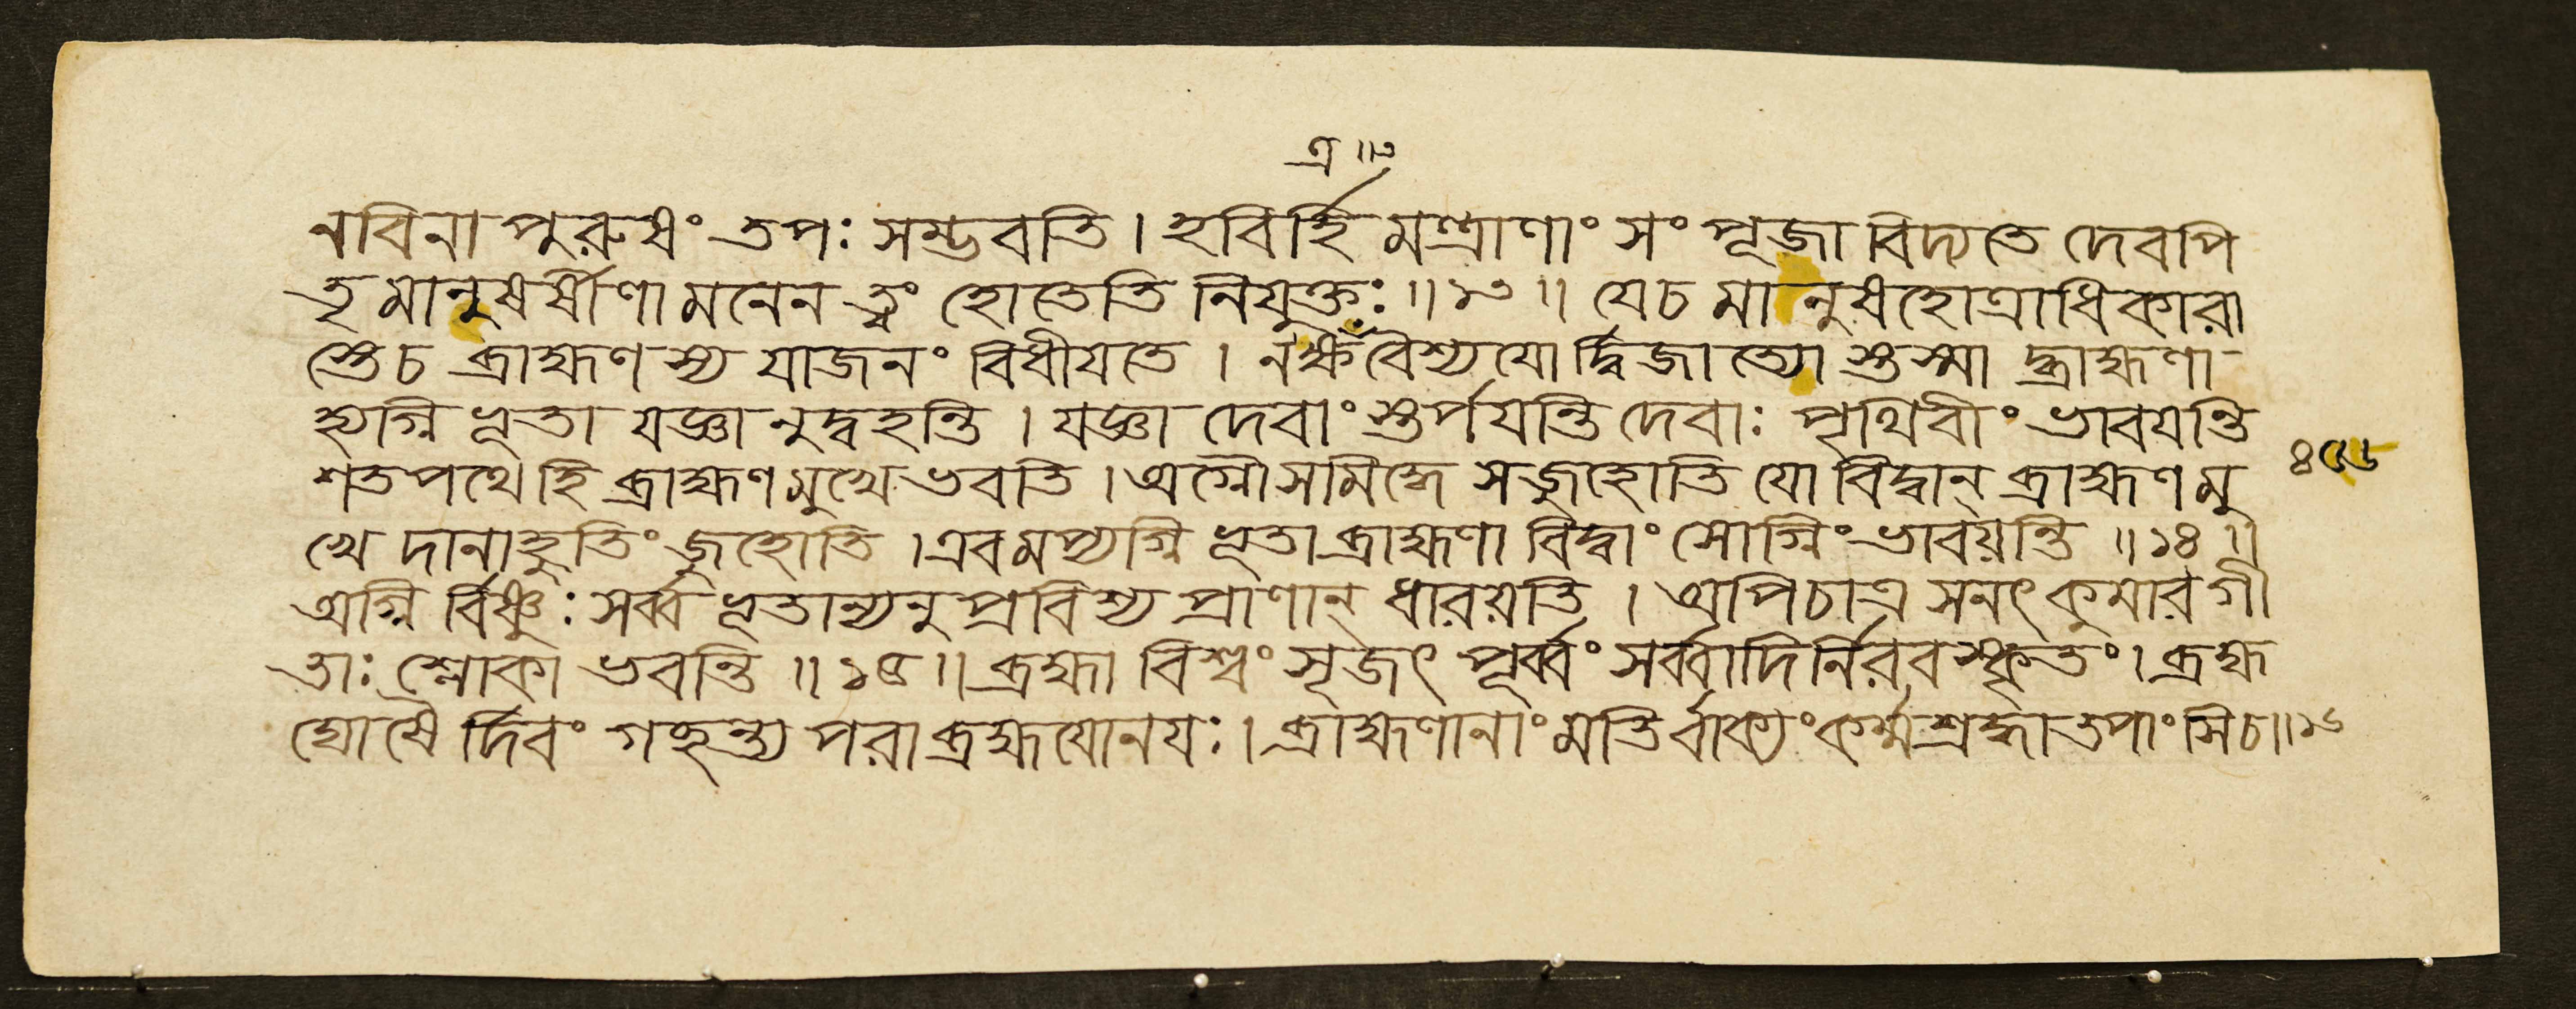 ত্র ॥৩
নবিনা পুরুষং তপঃ সম্ভবতি । হবির্হি মন্ত্রাণাং সং পূজা বিদ্যতে দেবপি
তৃ মানুষর্ষীণা মনেন ত্বং হোতেতি নিযুক্তঃ ॥ ১৩ ॥ যেচ মানুষহোত্রাধিকারা
স্তেচ ব্রাহ্মণ স্য যাজনং বিধীযতে । নক্ষত্রবৈশ্যযো র্দ্বিজাত্যো স্তস্মা দ্ব্রাহ্মণা
হ্যগ্নি ভূতা যজ্ঞানুদ্বহন্তি । যজ্ঞা দেবাং স্তর্পযন্তি দেবাঃ পৃথিবীং ভাবযন্তি
শতপথে হি ব্রাহ্মণমুখে ভবতি । অগ্নৌ সমিদ্ধে সজুহোতি যো বিদ্বান্ ব্রাহ্মণমু
খে দানাহুতিং জুহোতি । এবমপ্যগ্নি ভূতা ব্রাহ্মণা বিদ্বাং সোগ্নিং ভাবয়ন্তি ॥ ১৪ ॥
অগ্নি র্বিষ্ণুঃ সর্ব্ব ভূতান্যনু প্রবিশ্য প্রাণান্ ধারয়তি । অপিচাত্র সনৎকুমার গী
তাঃ শ্লোকা ভবন্তি ॥ ১৫ ॥ ব্রহ্মা বিশ্বং সৃজৎ পূর্ব্বং সর্ব্বাদির্নিরবস্কৃতং । ব্রহ্ম
ঘোষৈ র্দিবং গছন্ত্য পরা ব্রহ্মযোনযঃ । ব্রাহ্মণানাং মতির্বাক্যং কর্ম্ম শ্রদ্ধা তপাংসিচ ॥ ১৬